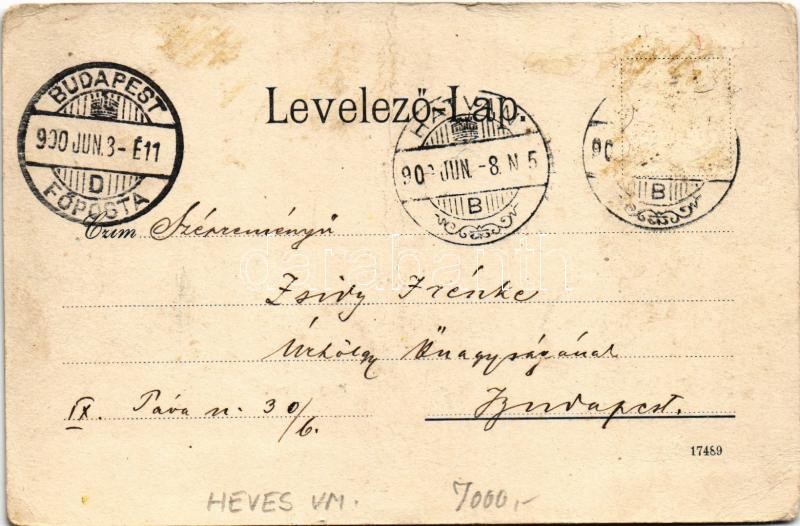 Levelező-Lap.
BUDAPEST
900 JUN. 8- É11
D
FŐPOSTA
HATVAN
900 JUN. -8. N 5
B
90
B
Czim Szépreményü
Zsidy Irénke
Úrhölgy Őnagyságának
IX. Páva u. 30/6. Budapest.
17489
HEVES VM. 7000,-
darabanth